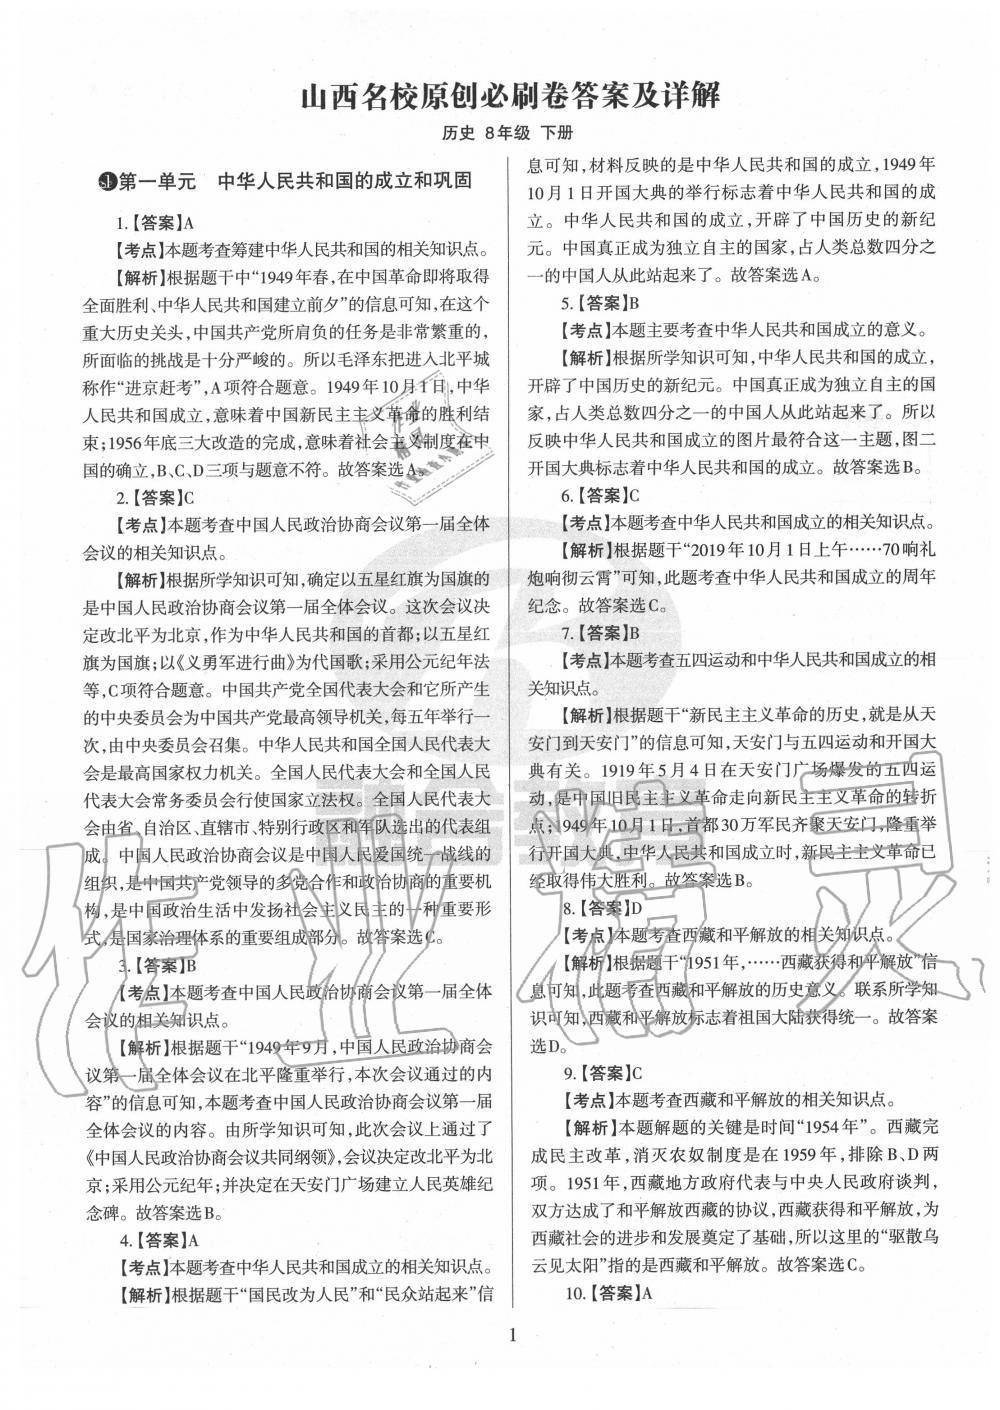 山西名校原创必刷卷答案及详解
历史 8年级 下册
第一单元 中华人民共和国的成立和巩固
1.【答案】A
【考点】本题考查筹建中华人民共和国的相关知识点。
【解析】根据题干中“1949年春,在中国革命即将取得
全面胜利、中华人民共和国建立前夕”的信息可知,在这个
重大历史关头,中国共产党所肩负的任务是非常繁重的,
所面临的挑战是十分严峻的。所以毛泽东把进入北平城
称作“进京赶考”,A项符合题意。1949年10月1日,中华
人民共和国成立,意味着中国新民主主义革命的胜利结
束;1956年底三大改造的完成,意味着社会主义制度在中
国的确立,B、C、D三项与题意不符。故答案选A。
2.【答案】C
【考点】本题考查中国人民政治协商会议第一届全体
会议的相关知识点。
【解析】根据所学知识可知,确定以五星红旗为国旗的
是中国人民政治协商会议第一届全体会议。这次会议决
定改北平为北京,作为中华人民共和国的首都;以五星红
旗为国旗;以《义勇军进行曲》为代国歌;采用公元纪年法
等,C项符合题意。中国共产党全国代表大会和它所产生
的中央委员会为中国共产党最高领导机关,每五年举行一
次,由中央委员会召集。中华人民共和国全国人民代表大
会是最高国家权力机关。全国人民代表大会和全国人民
代表大会常务委员会行使国家立法权。全国人民代表大
会由省、自治区、直辖市、特别行政区和军队选出的代表组
成。中国人民政治协商会议是中国人民爱国统一战线的
组织,是中国共产党领导的多党合作和政治协商的重要机
构,是中国政治生活中发扬社会主义民主的一种重要形
式,是国家治理体系的重要组成部分。故答案选C。
3.【答案】B
【考点】本题考查中国人民政治协商会议第一届全体
会议的相关知识点。
【解析】根据题干“1949年9月,中国人民政治协商会
议第一届全体会议在北平隆重举行,本次会议通过的内
容”的信息可知,本题考查中国人民政治协商会议第一届
全体会议的内容。由所学知识可知,此次会议上通过了
《中国人民政治协商会议共同纲领》,会议决定改北平为北
京;采用公元纪年;并决定在天安门广场建立人民英雄纪
念碑。故答案选B。
4.【答案】A
【考点】本题考查中华人民共和国成立的相关知识点。
【解析】根据题干“国民改为人民”和“民众站起来”信
息可知,材料反映的是中华人民共和国的成立,1949年
10月1日开国大典的举行标志着中华人民共和国的成
立。中华人民共和国的成立,开辟了中国历史的新纪
元。中国真正成为独立自主的国家,占人类总数四分之
一的中国人从此站起来了。故答案选A。
5.【答案】B
【考点】本题主要考查中华人民共和国成立的意义。
【解析】根据所学知识可知,中华人民共和国的成立,
开辟了中国历史的新纪元。中国真正成为独立自主的国
家,占人类总数四分之一的中国人从此站起来了。所以
反映中华人民共和国成立的图片最符合这一主题,图二
开国大典标志着中华人民共和国的成立。故答案选B。
6.【答案】C
【考点】本题考查中华人民共和国成立的相关知识点。
【解析】根据题干“2019年10月1日上午……70响礼
炮响彻云霄”可知,此题考查中华人民共和国成立的周年
纪念。故答案选C。
7.【答案】B
【考点】本题考查五四运动和中华人民共和国成立的相
关知识点。
【解析】根据题干“新民主主义革命的历史,就是从天
安门到天安门”的信息可知,天安门与五四运动和开国大
典有关。1919年5月4日在天安门广场爆发的五四运
动,是中国旧民主主义革命走向新民主主义革命的转折
点;1949年10月1日,首都30万军民齐聚天安门,隆重举
行开国大典,中华人民共和国成立时,新民主主义革命已
经取得伟大胜利。故答案选B。
8.【答案】D
【考点】本题考查西藏和平解放的相关知识点。
【解析】根据题干“1951年,……西藏获得和平解放”信
息可知,此题考查西藏和平解放的历史意义。联系所学知
识可知,西藏和平解放标志着祖国大陆获得统一。故答案
选D。
9.【答案】C
【考点】本题考查西藏和平解放的相关知识点。
【解析】本题解题的关键是时间“1954年”。西藏完
成民主改革,消灭农奴制度是在1959年,排除B、D两
项。1951年,西藏地方政府代表与中央人民政府谈判,
双方达成了和平解放西藏的协议,西藏获得和平解放,为
西藏社会的进步和发展奠定了基础,所以这里的“驱散乌
云见太阳”指的是西藏和平解放。故答案选C。
10.【答案】A
1
作业精灵